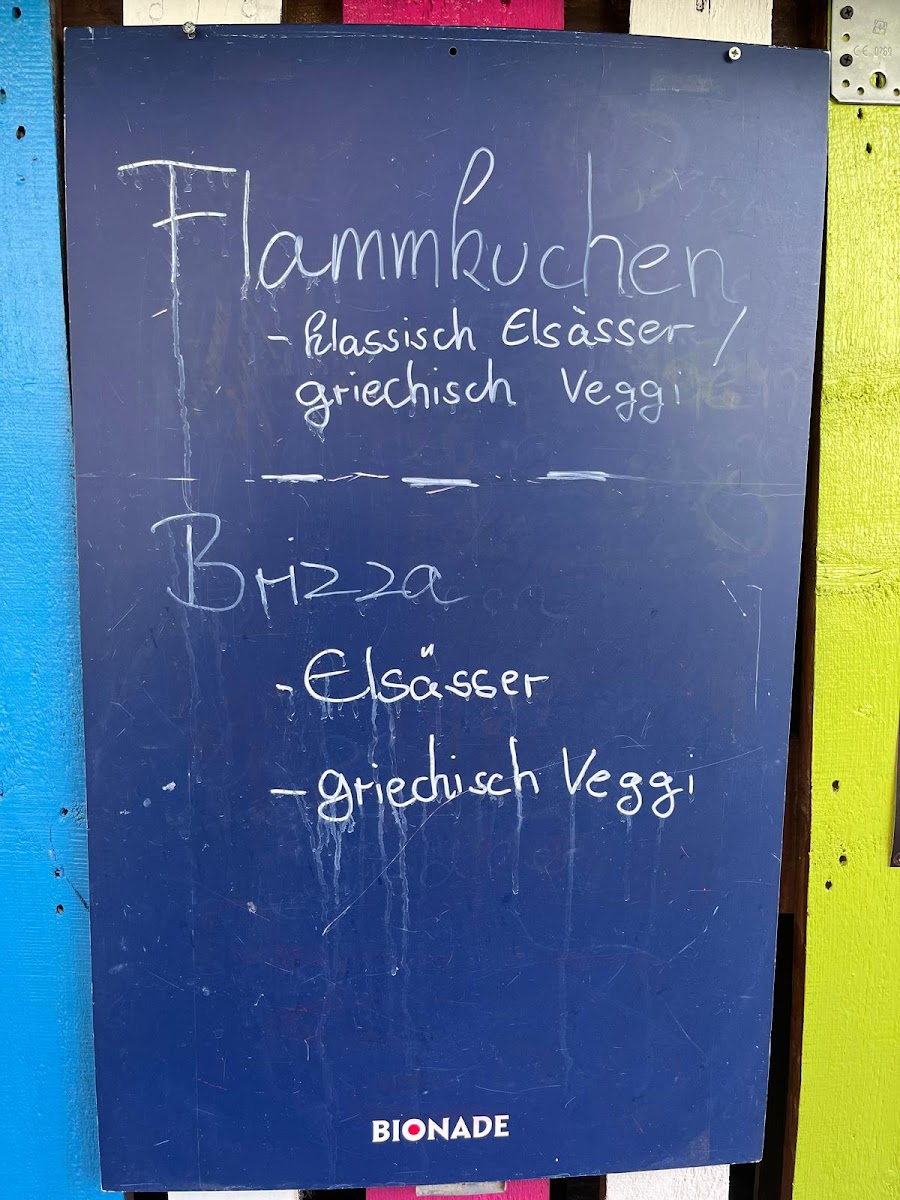 Flammkuchen
- klassisch Elsässer /
griechisch Veggi
Brizza
- Elsässer
- griechisch Veggi
BIONADE